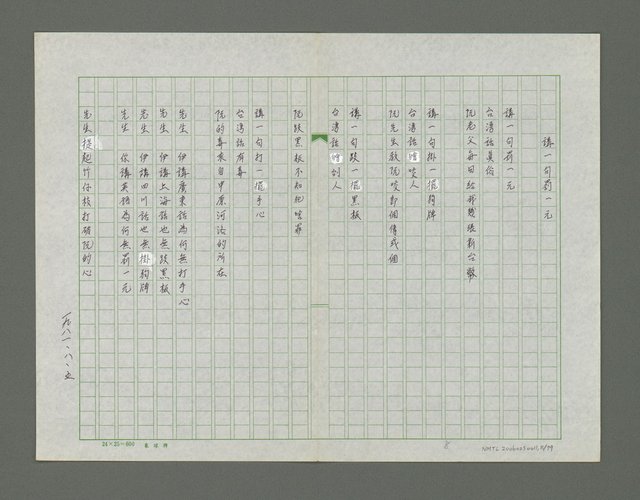 講一句罰一元
講一句罰一元
台灣話真俗
阮老父每日給我幾張新台幣
講一句掛一擺狗牌
台灣話會咬人
阮先生教阮咬即個傳或個
講一句跋一擺黑板
台灣話會刣人
阮跋黑板不知犯啥罪
講一句打一擺手心
台灣話有毒
阮的毒來自中原河洛的所在
先生 伊講廣東話為何無打手心
先生 伊講上海話也無跋黑板
先生 伊講四川話也無掛狗牌
先生 你講英語為何無罰一元
先生提起竹仔枝打破阮的心
一九八一、八、五
24×25=600
8